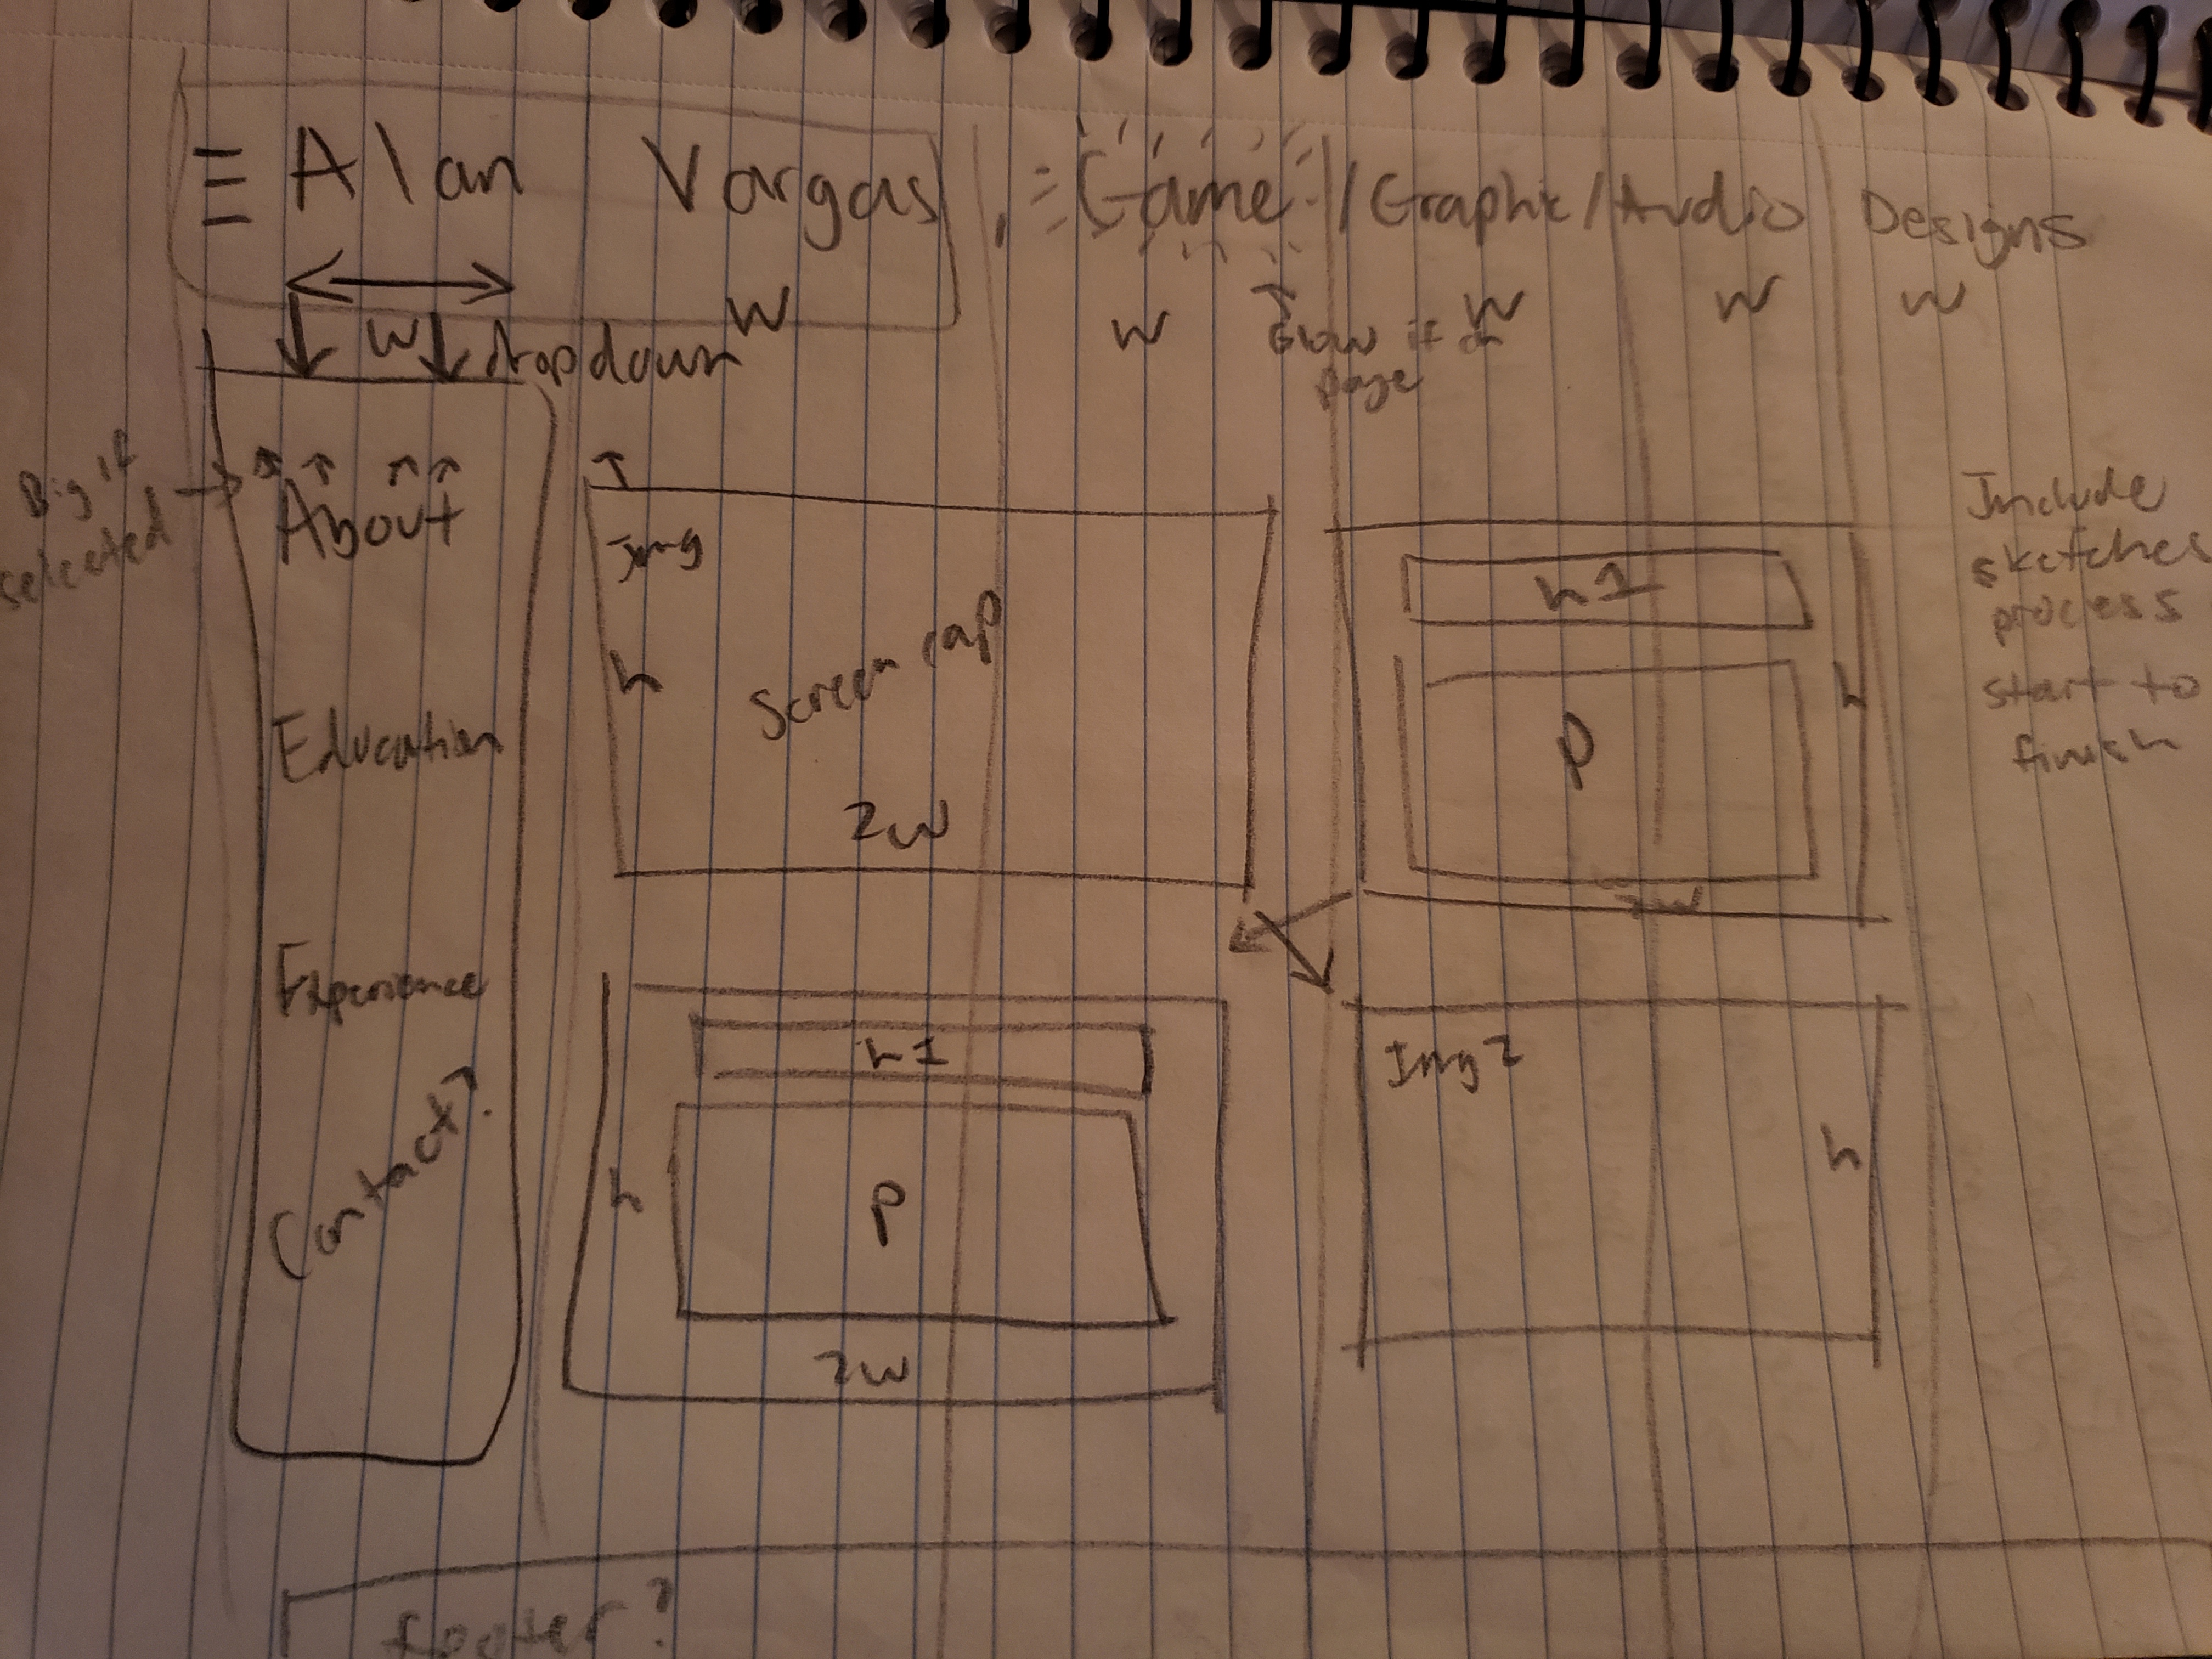 Alan Vargas
Game / Graphic / Audio Designs
w
w
w
w
w
w
dropdown
Glow if on
page
Big if
selected →
About
Education
Experience
Contact?
Img
h
Screen cap
2w
h1
p
h
2w
h1
p
h
2w
Img 2
h
Include
sketches
process
start to
finish
footer?